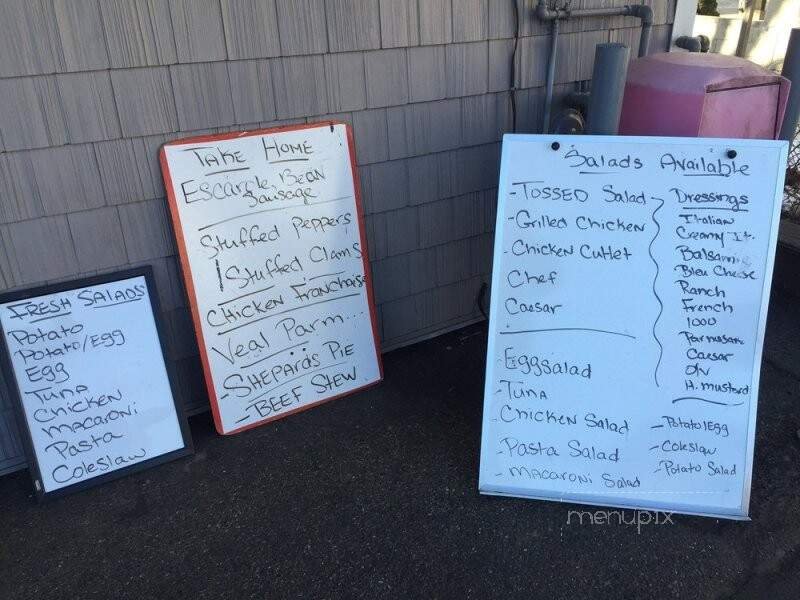 FRESH SALADS
Potato
Potato/Egg
Egg
TUNA
Chicken
macaroni
Pasta
Coleslaw
TAKE HOME
ESCAROLE, BEAN
Sausage
Stuffed Peppers
Stuffed Clams
Chicken Franchaise
Veal Parm...
- SHEPARd's PiE
- BEEF StEW
Salads Available
- TOSSED Salad
- Grilled Chicken
- Chicken Cutlet
Chef
Caesar
- Eggsalad
- TUNA
- Chicken Salad
- Pasta Salad
- MACARONi Salad
Dressings
Italian
Creamy It.
Balsamic
Bleu Cheese
Ranch
French
1000
Parmesan
Caesar
O/V
H. mustard
- Potato/Egg
- Coleslaw
- Potato Salad
menupix